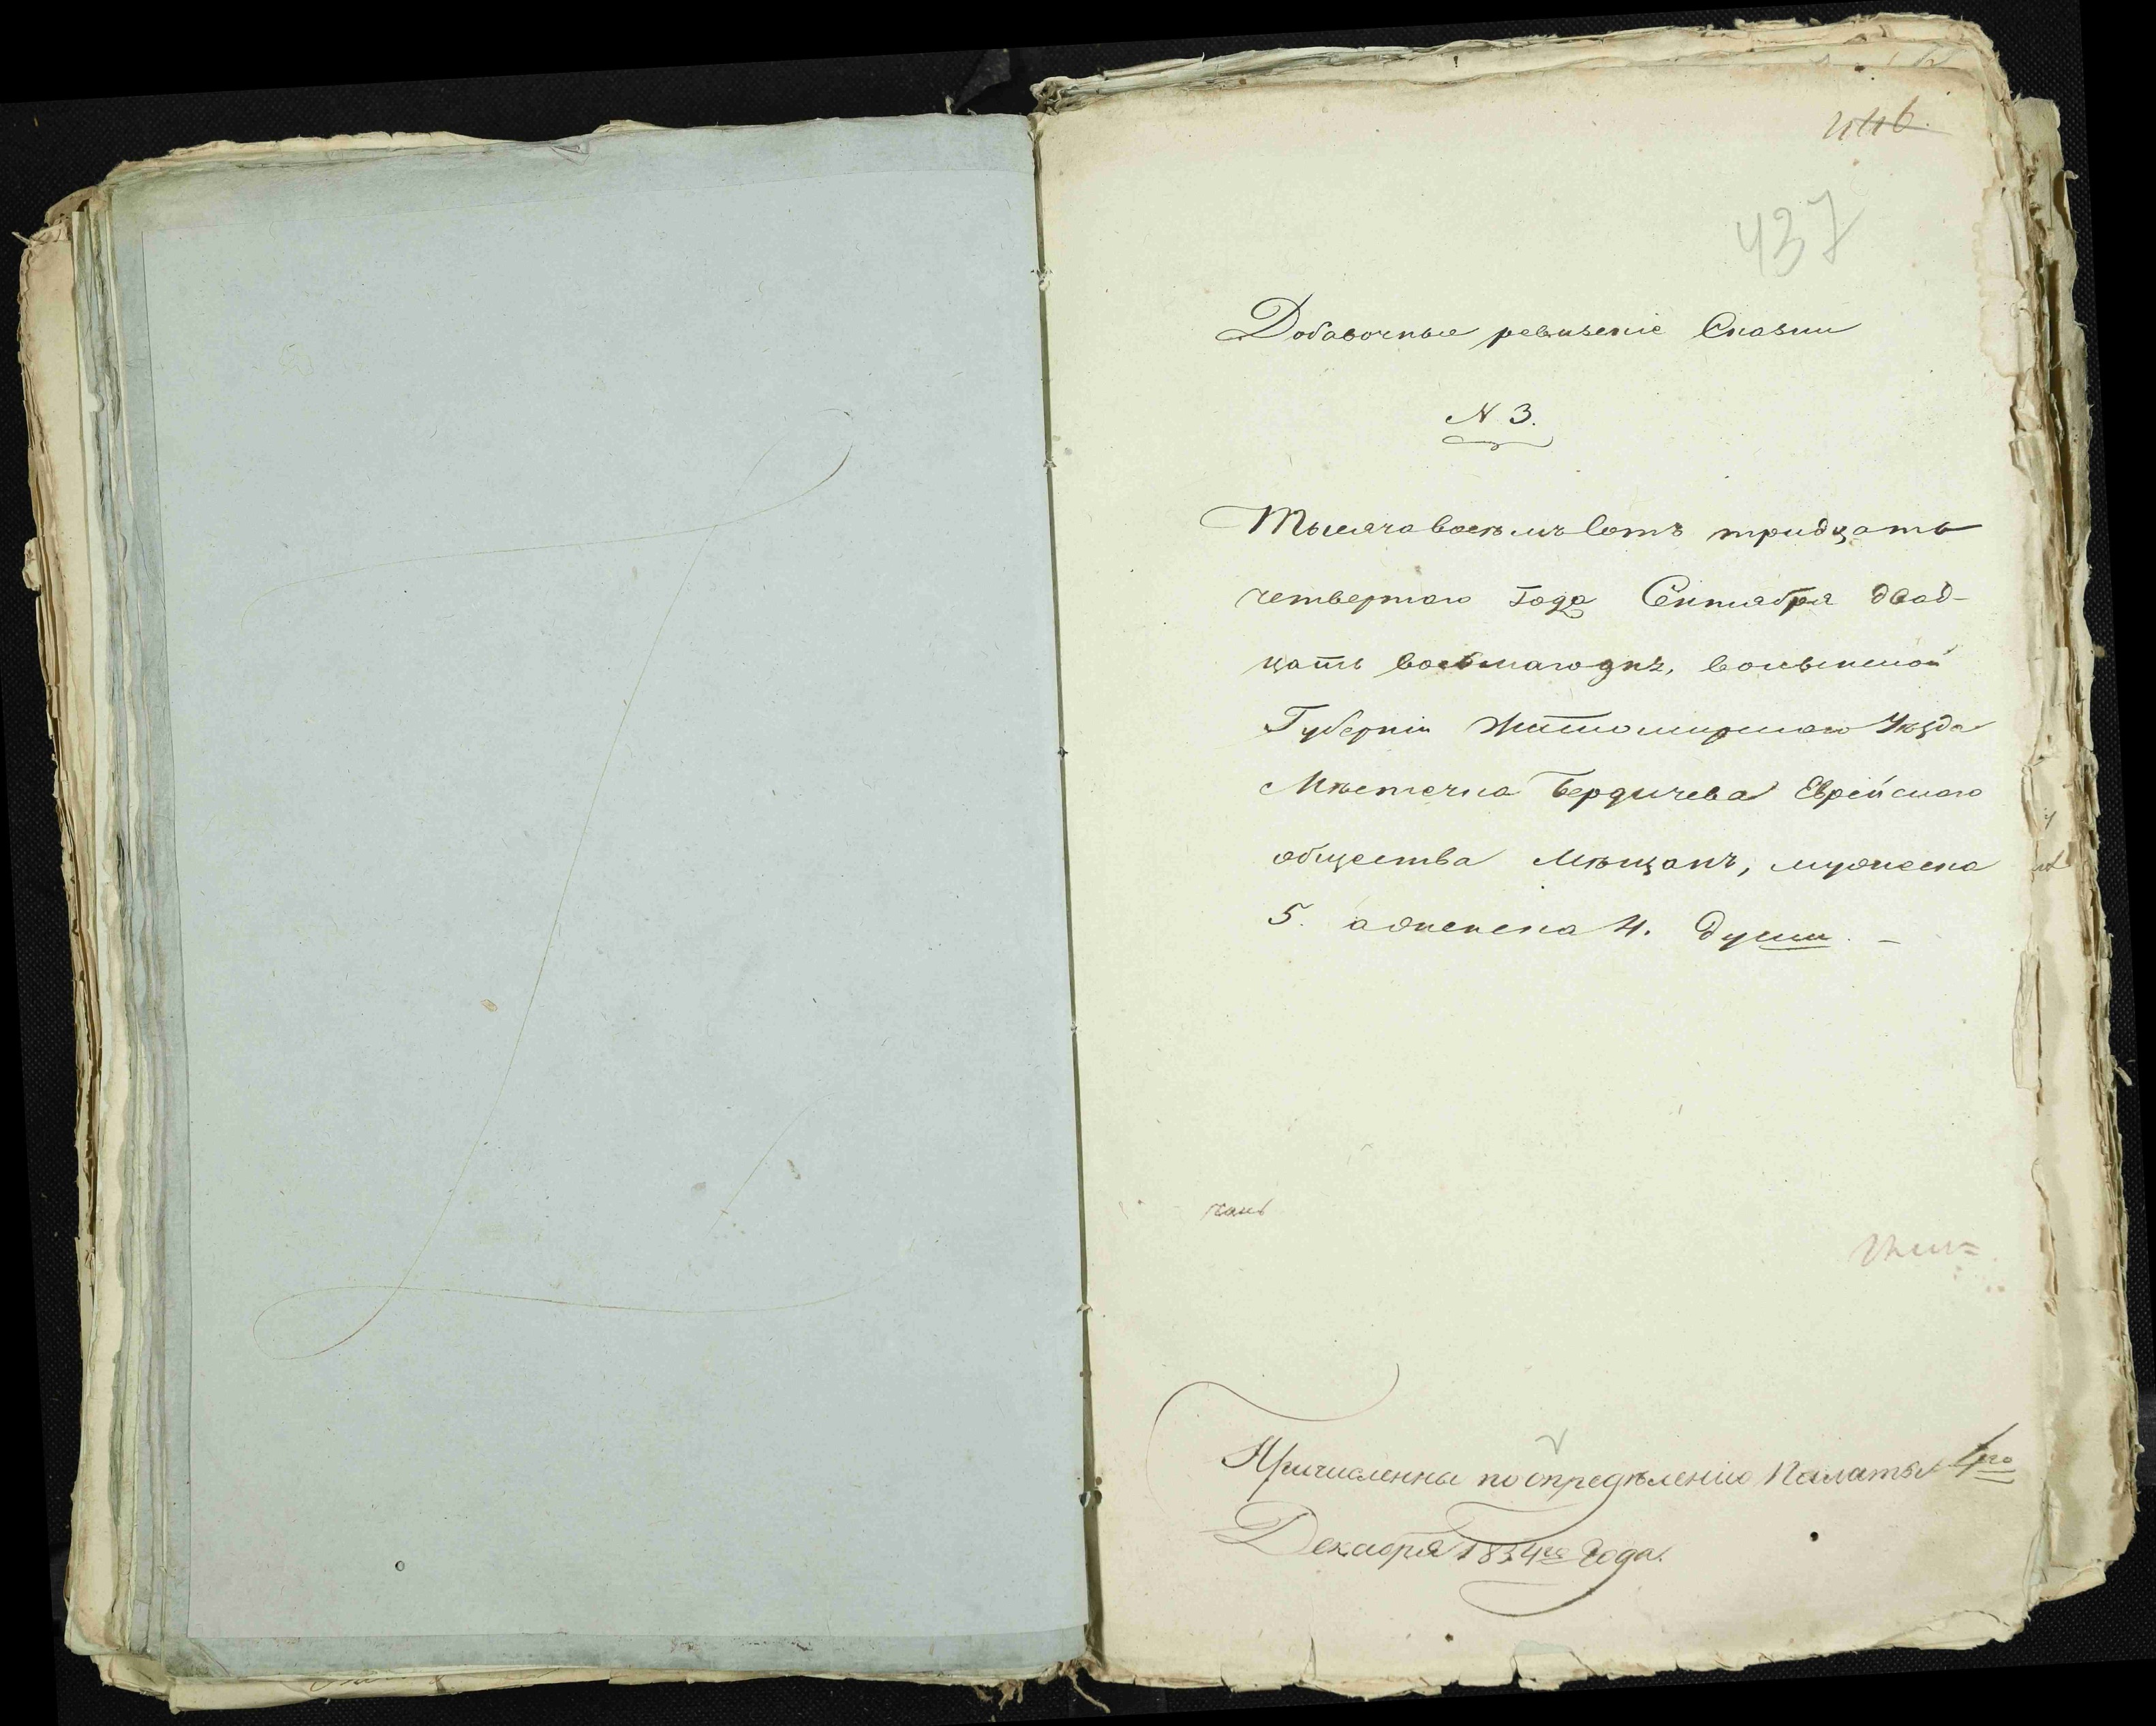 446.
437
Добавочные ревизскіе Сказки
N 3.
Тысяча восѣмъ сотъ тридцать
четвертаго Года Сентября двад-
цать восьмаго дня, волынской
Губерніи Житомирскаго Уѣзда
Мѣстечка Бердичева Еврейскаго
общества Мѣщанъ, мужеска
5. а женска 4. души. –
Причисленны по опредѣленію Палаты 4го
Декабря 1834го Года.